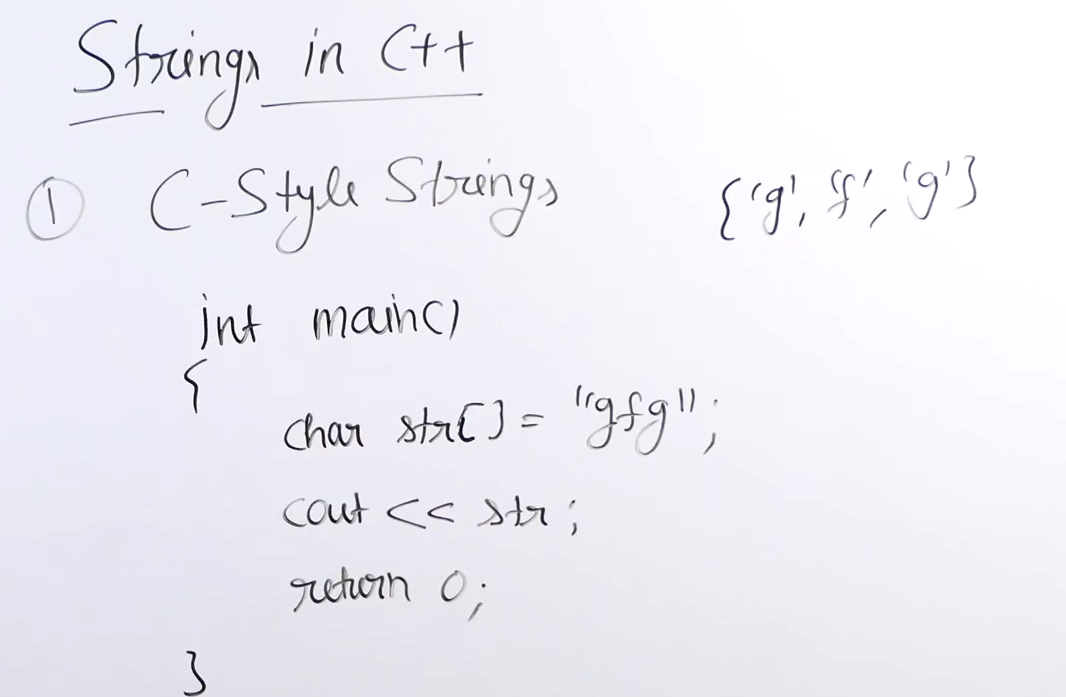 Strings in C++
① C-Style Strings {'g', 'f', 'g'}
int main()
{
char str[] = "gfg";
cout << str;
return 0;
}